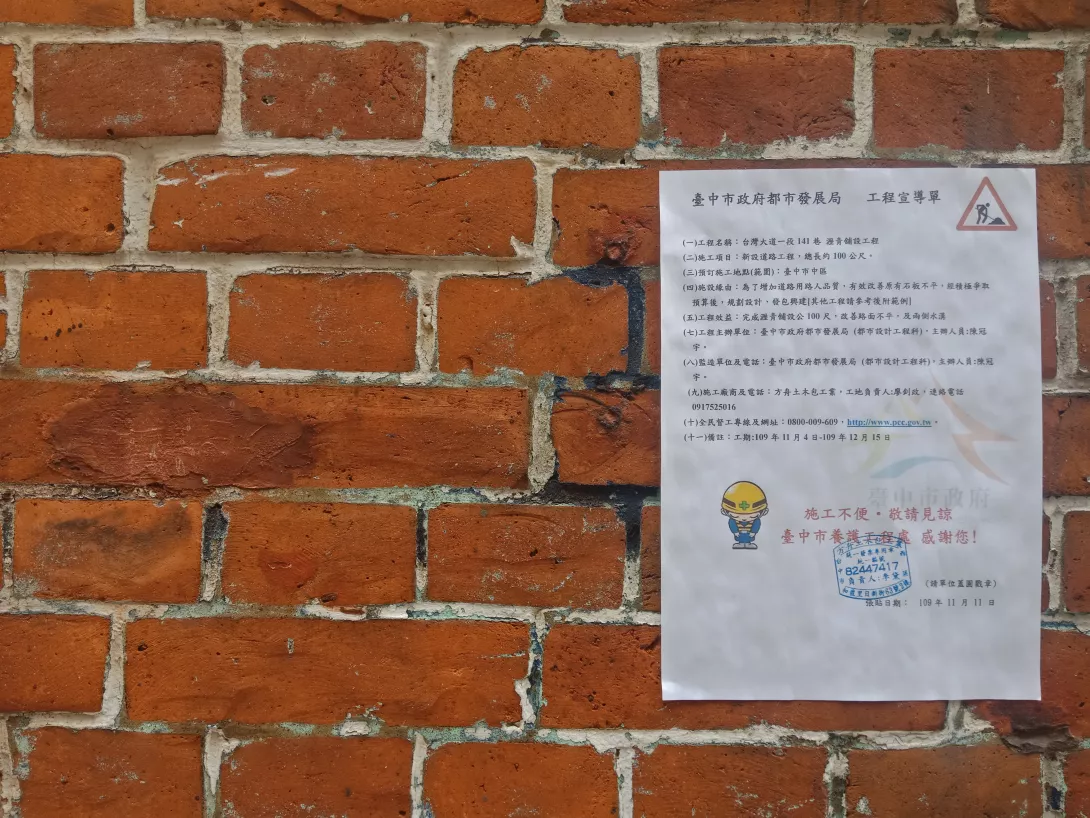 臺中市政府都市發展局 工程宣導單
(一)工程名稱：台灣大道一段 141 巷 瀝青舖設工程
(二)施工項目：新設道路工程，總長約 100 公尺。
(三)預訂施工地點(範圍)：臺中市中區
(四)施設緣由：為了增加道路用路人品質，有效改善原有石板不平，經積極爭取
預算後，規劃設計，發包興建[其他工程請參考後附範例]
(五)工程效益：完成瀝青舖設公 100 尺，改善路面不平，及兩側水溝
(七)工程主辦單位：臺中市政府都市發展局 (都市設計工程科)，主辦人員:陳冠
宇。
(八)監造單位及電話：臺中市政府都市發展局 (都市設計工程科)，主辦人員:陳冠
宇。
(九)施工廠商及電話：方舟土木包工業，工地負責人:廖釗政，連絡電話
0917525016
(十)全民督工專線及網址：0800-009-609，http://www.pcc.gov.tw。
(十一)備註：工期:109 年 11 月 4 日-109 年 12 月 15 日
臺中市政府
施工不便，敬請見諒
臺中市養護工程處 感謝您!
統一發票專用章
統一編號
82447417
負責人：李
(請單位蓋圓戳章)
張貼日期： 109 年 11 月 11 日